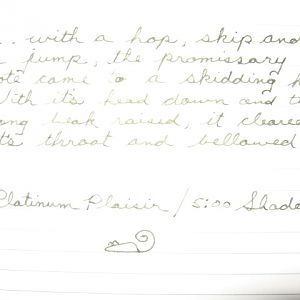 .. with a hop, skip and
jump, the promissory
note came to a skidding
With it's head down and
long beak raised, it cleared
it's throat and bellowed
Platinum Plaisir / 5:00 Shade